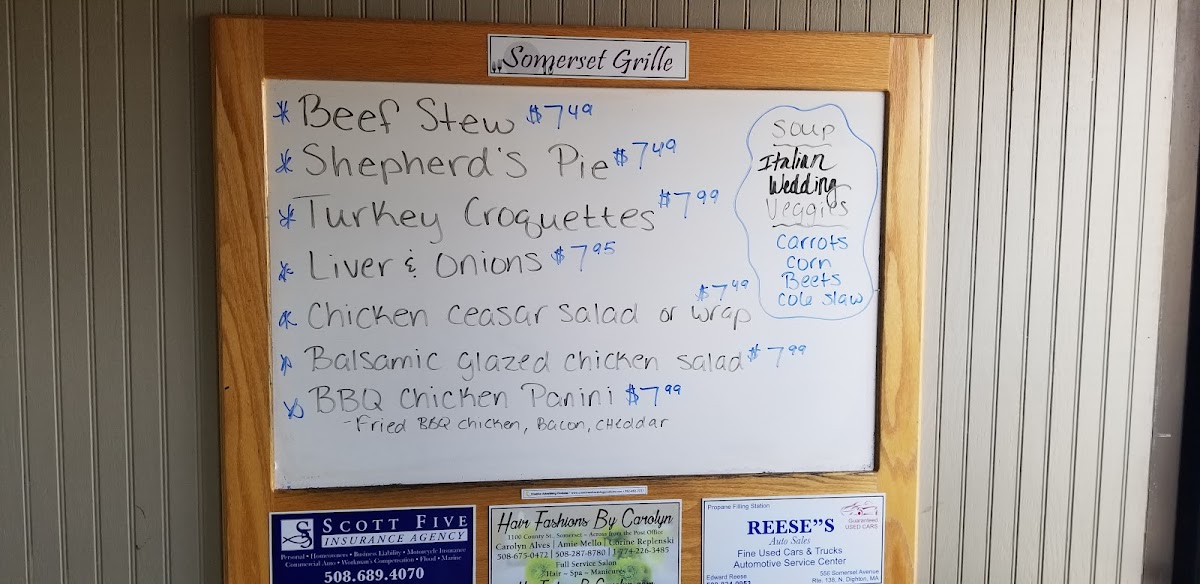 Somerset Grille
* Beef Stew $7.49
* Shepherd's Pie $7.49
* Turkey Croquettes $7.99
* Liver & Onions $7.95
* Chicken ceasar salad or wrap $7.49
* Balsamic glazed chicken salad $7.99
* BBQ Chicken Panini $7.99
- Fried BBQ chicken, Bacon, cheddar
Soup
Italian
Wedding
Veggies
carrots
corn
Beets
cole slaw
SCOTT FIVE
INSURANCE AGENCY
Personal • Homeowners • Business Liability • Motorcycle Insurance
Commercial Auto • Workman's Compensation • Flood • Marine
508.689.4070
Hair Fashions By Carolyn
1100 County St., Somerset - Across from the Post Office
Carolyn Alves | Amie Mello | Corine Replenski
508-675-0472 | 508-287-8780 | 1-774-226-3485
Full Service Salon
Hair ~ Spa ~ Manicures
Propane Filling Station
Guaranteed
USED CARS
REESE"S
Auto Sales
Fine Used Cars & Trucks
Automotive Service Center
Edward Reese
556 Somerset Avenue
Rte. 138, N. Dighton, MA